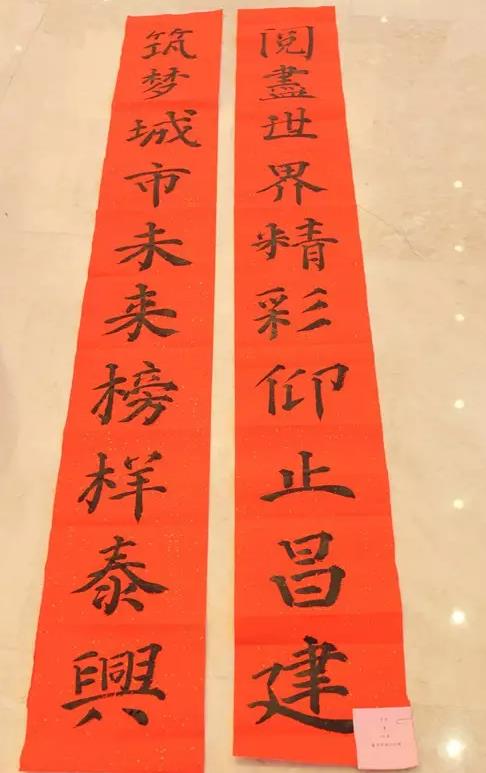 閱盡世界精彩仰止昌建
筑梦城市未来榜样泰興